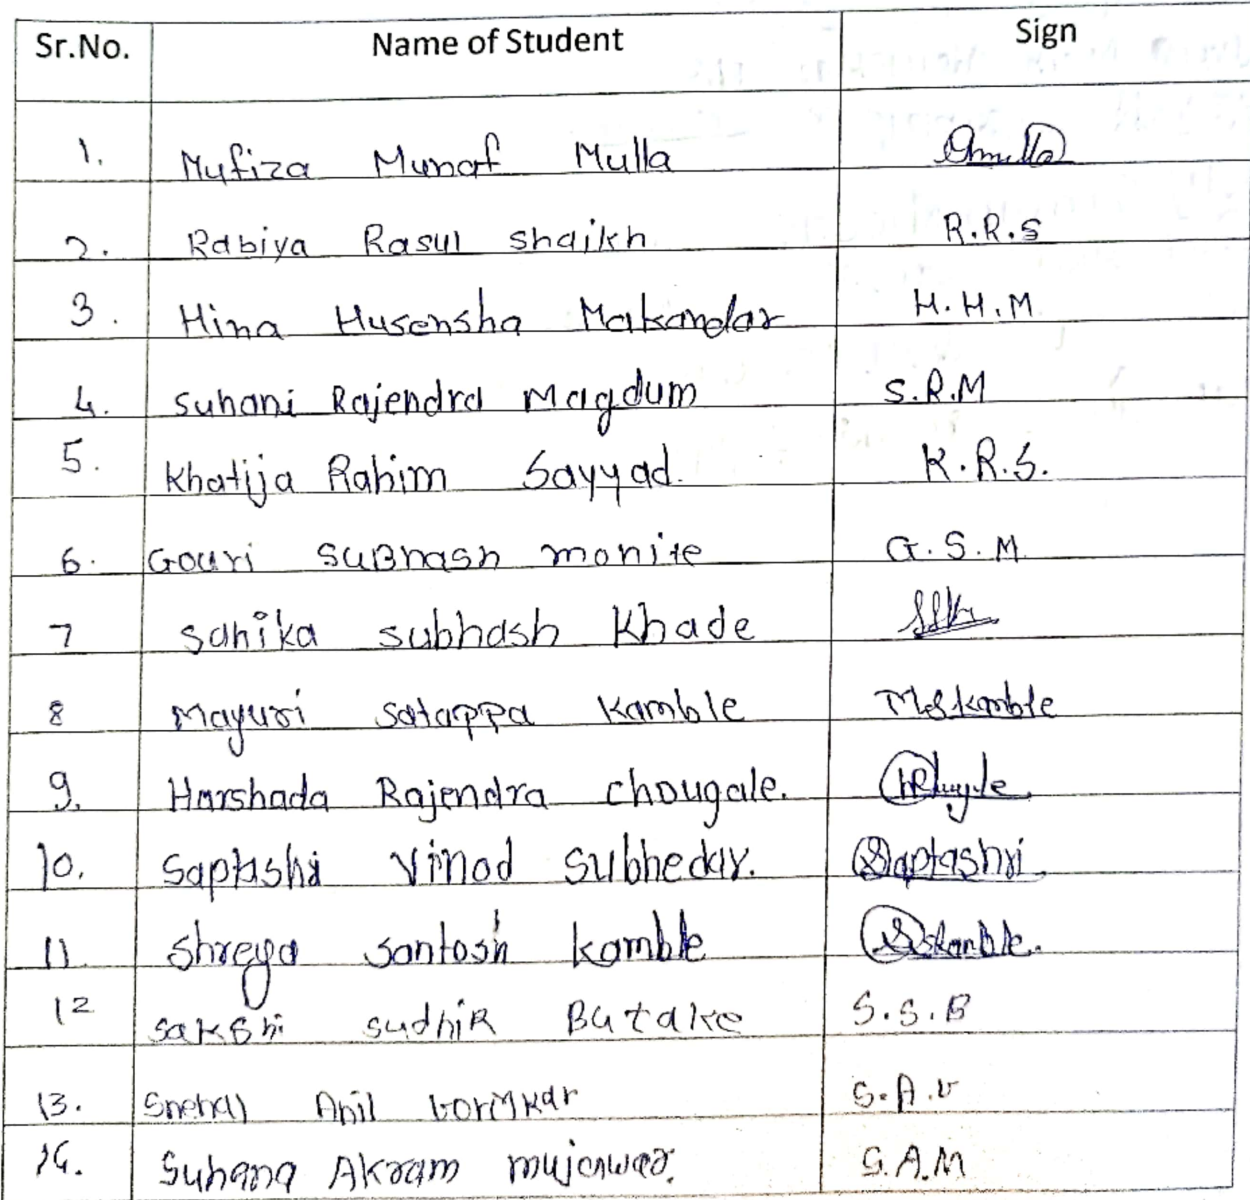 Sr.No. Name of Student Sign
1. Mufiza Munaf Mulla
2. Rabiya Rasul shaikh R.R.S
3. Hina Husensha Makandar H.H.M
4. Suhani Rajendra Magdum S.R.M
5. Khatija Rahim Sayyad. K.R.S.
6. Gouri SuBhash monite G.S.M
7 Sanika subhash Khade SSK
8 Mayuri Satappa Kamble MSKamble
9. Harshada Rajendra chougale.
10. Saptashi Vinod Subhedar. Saptashri
11 Shreya Santosh kamble Sskamble.
12 SakShi SudhiR Butake S.S.B
13. Snehal Anil S.A.V
14. Suhana Akram mujawar. S.A.M